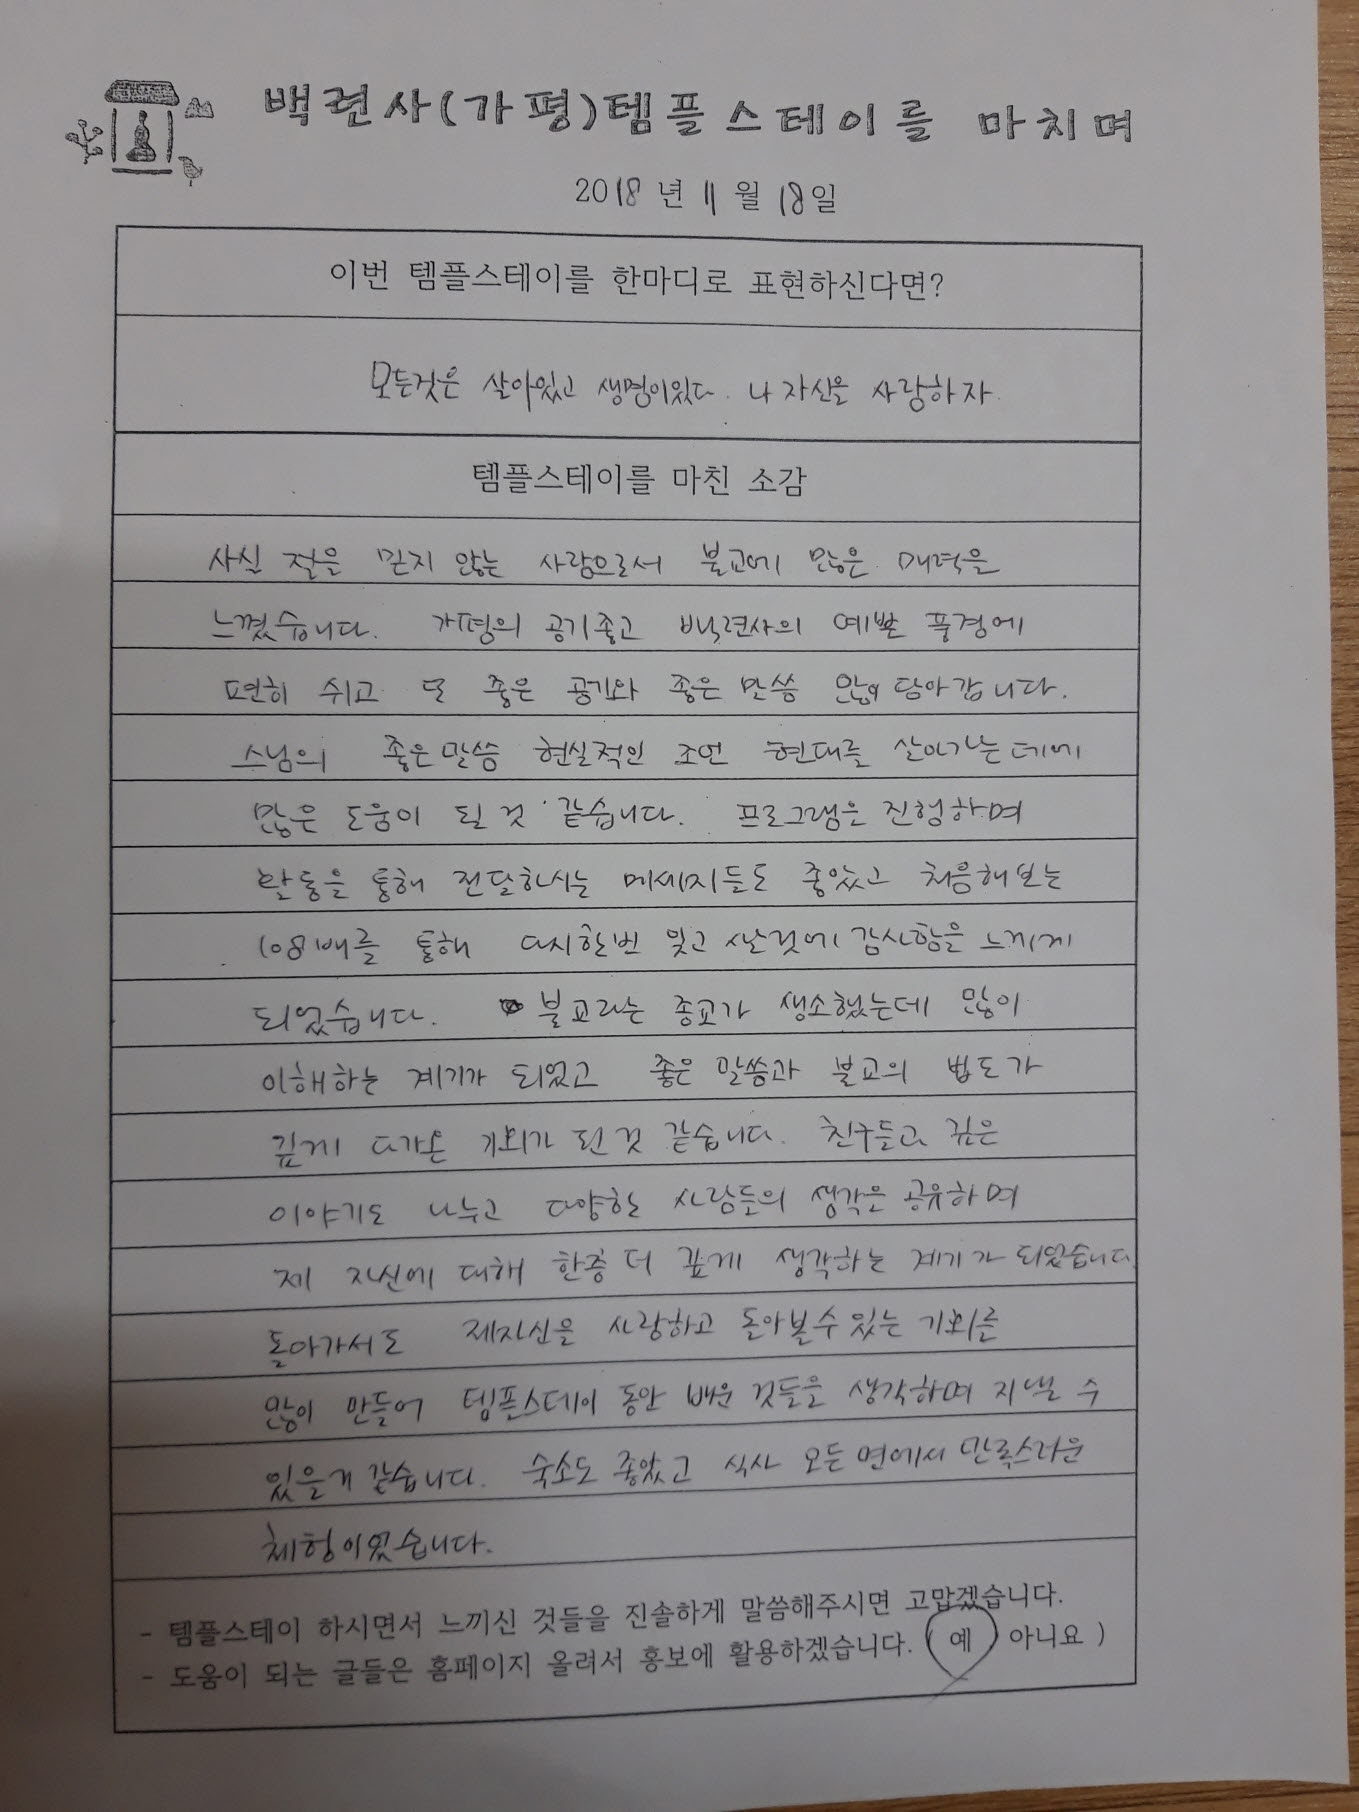 백련사(가평)템플스테이를 마치며
2018년 11월 18일
이번 템플스테이를 한마디로 표현하신다면?
모든것은 살아있고 생명이있다. 나 자신을 사랑하자.
템플스테이를 마친 소감
사실 절을 믿지 않는 사람으로서 불교에 많은 매력을
느꼈습니다. 가평의 공기좋고 백련사의 예쁜 풍경에
편히 쉬고 또 좋은 공기와 좋은 말씀 많이 담아갑니다.
스님의 좋은말씀 현실적인 조언 현대를 살아가는데에
많은 도움이 될 것 같습니다. 프로그램은 진행하며
활동을 통해 전달하시는 메세지들도 좋았고 처음해보는
108배를 통해 다시한번 잊고 산것에 감사함을 느끼게
되었습니다. 불교라는 종교가 생소했는데 많이
이해하는 계기가 되었고 좋은 말씀과 불교의 법도가
깊게 다가온 기회가 된 것 같습니다. 친구들과 깊은
이야기도 나누고 다양한 사람들의 생각을 공유하며
제 자신에 대해 한층 더 깊게 생각하는 계기가 되었습니다.
돌아가서도 제자신을 사랑하고 돌아볼수있는 기회를
많이 만들어 템플스테이 동안 배운 것들을 생각하며 지낼 수
있을거 같습니다. 숙소도 좋았고 식사 모든 면에서 만족스러운
체험이었습니다.
- 템플스테이 하시면서 느끼신 것들을 진솔하게 말씀해주시면 고맙겠습니다.
- 도움이 되는 글들은 홈페이지 올려서 홍보에 활용하겠습니다. ( 예 아니요 )